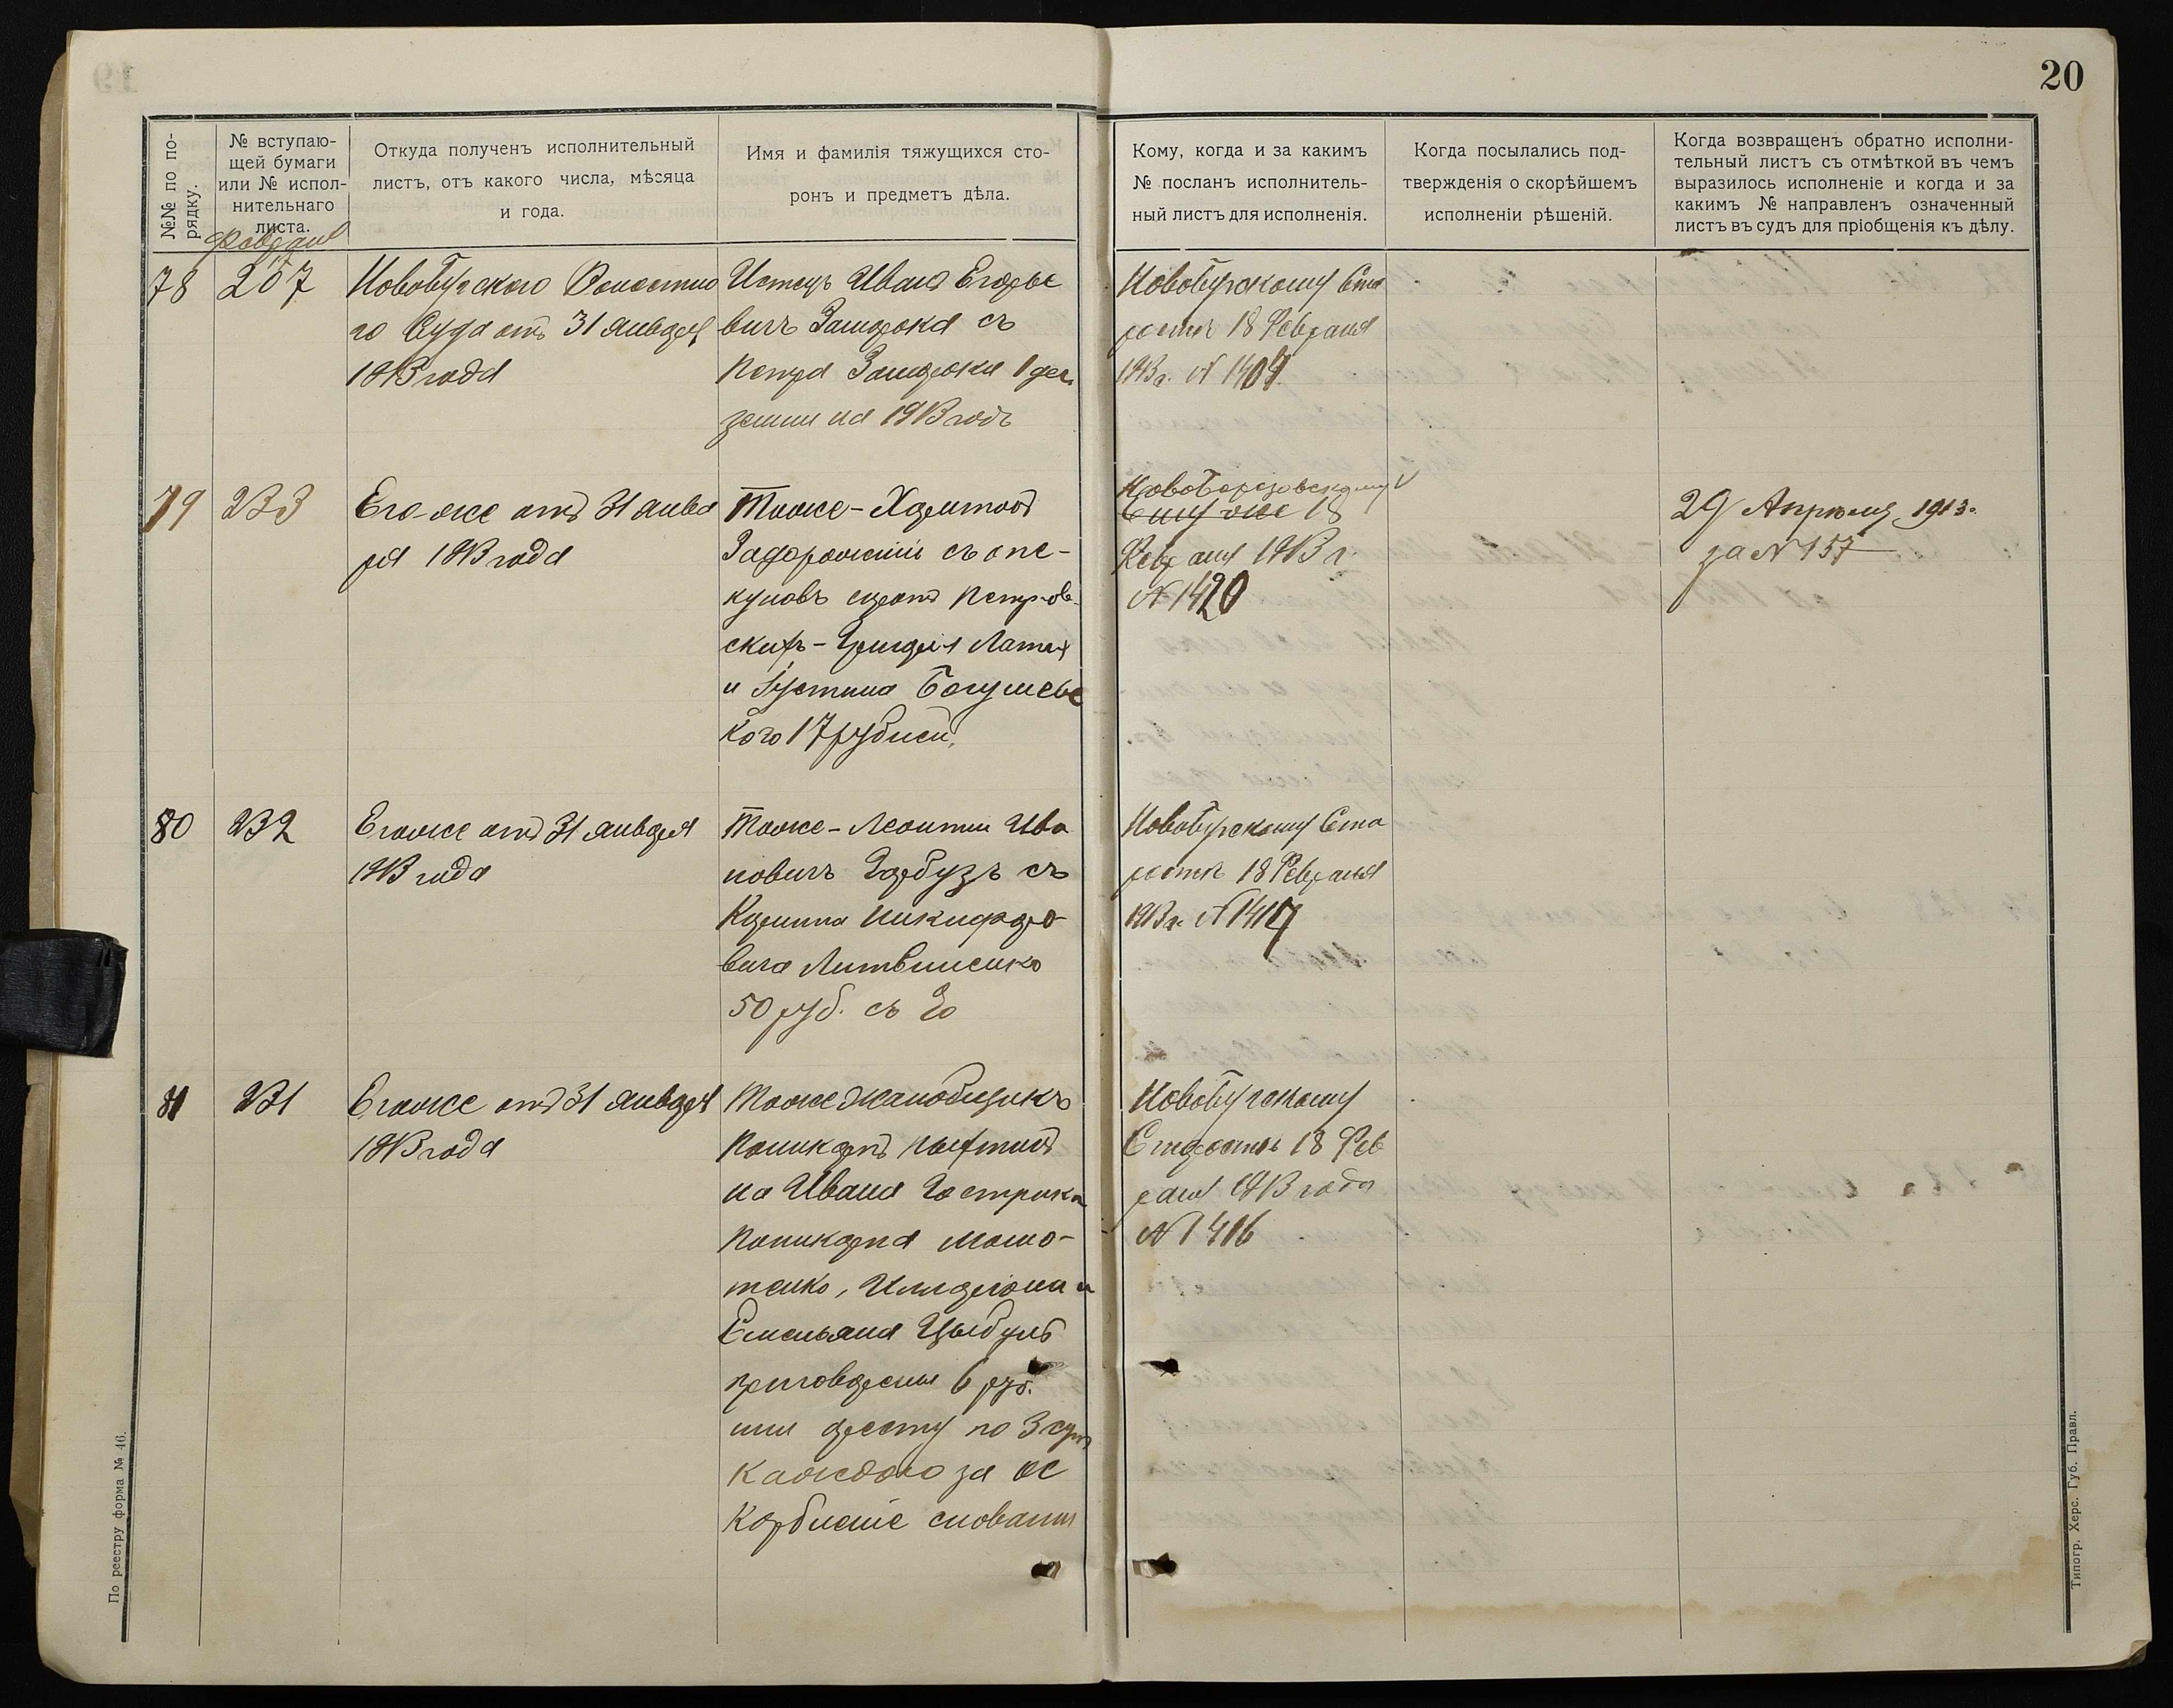 20
№№ по по-
рядку.
№ вступаю-
щей бумаги
или № испол-
нительнаго
листа.
Откуда полученъ исполнительный
листъ, отъ какого числа, мѣсяца
и года.
Имя и фамилія тяжущихся сто-
ронъ и предметъ дѣла.
Кому, когда и за какимъ
№ посланъ исполнитель-
ный листъ для исполненія.
Когда посылались под-
твержденія о скорѣйшемъ
исполненіи рѣшеній.
Когда возвращенъ обратно исполни-
тельный листъ съ отмѣткой въ чемъ
выразилось исполненіе и когда и за
какимъ № направленъ означенный
листъ въ судъ для пріобщенія къ дѣлу.
Февраля
78
Новобугскаго Волостно
го Суда отъ 31 января
1913 года
Истецъ Иванъ Егорье
вичъ съ
Петра 1 дес.
земли на 1913 годъ
Новобугскому Ста
ростѣ 18 Февраля
1913 г. № 1409
79
233
Его-же отъ 31 янва
ря 1913 года
Тоже - Харитонъ
Задорожній съ опе-
куновъ сиротъ Петров-
скихъ - Григорія
и Устина Богушевс
кого 17 рублей
Новоборозовскому
Ему же 18
Февраля 1913 г.
№ 1420
29 Апрѣля 1913 г.
за № 157
80
232
Его же отъ 31 января
1913 года
Тоже - Леонтій Ива
новичъ Гарбузъ съ
Никифоро-
вича Литвиненко
50 руб. съ
Новобугскому Ста
ростѣ 18 Февраля
1913 г. № 1417
81
231
Его же отъ 31 января
1913 года
Тоже Жалобщикъ
Поликарпъ
на Ивана
Поликарпа
тенко, Илларіона и
Емельяна Цыбуль
приговорены 6 руб.
или аресту по 3 сут
каждого за ос
корбленіе словами
Новобугскому
Старостѣ 18 Фев
раля 1913 года
№ 1416
По реестру форма № 46.
Типогр. Херс. Губ. Правл.